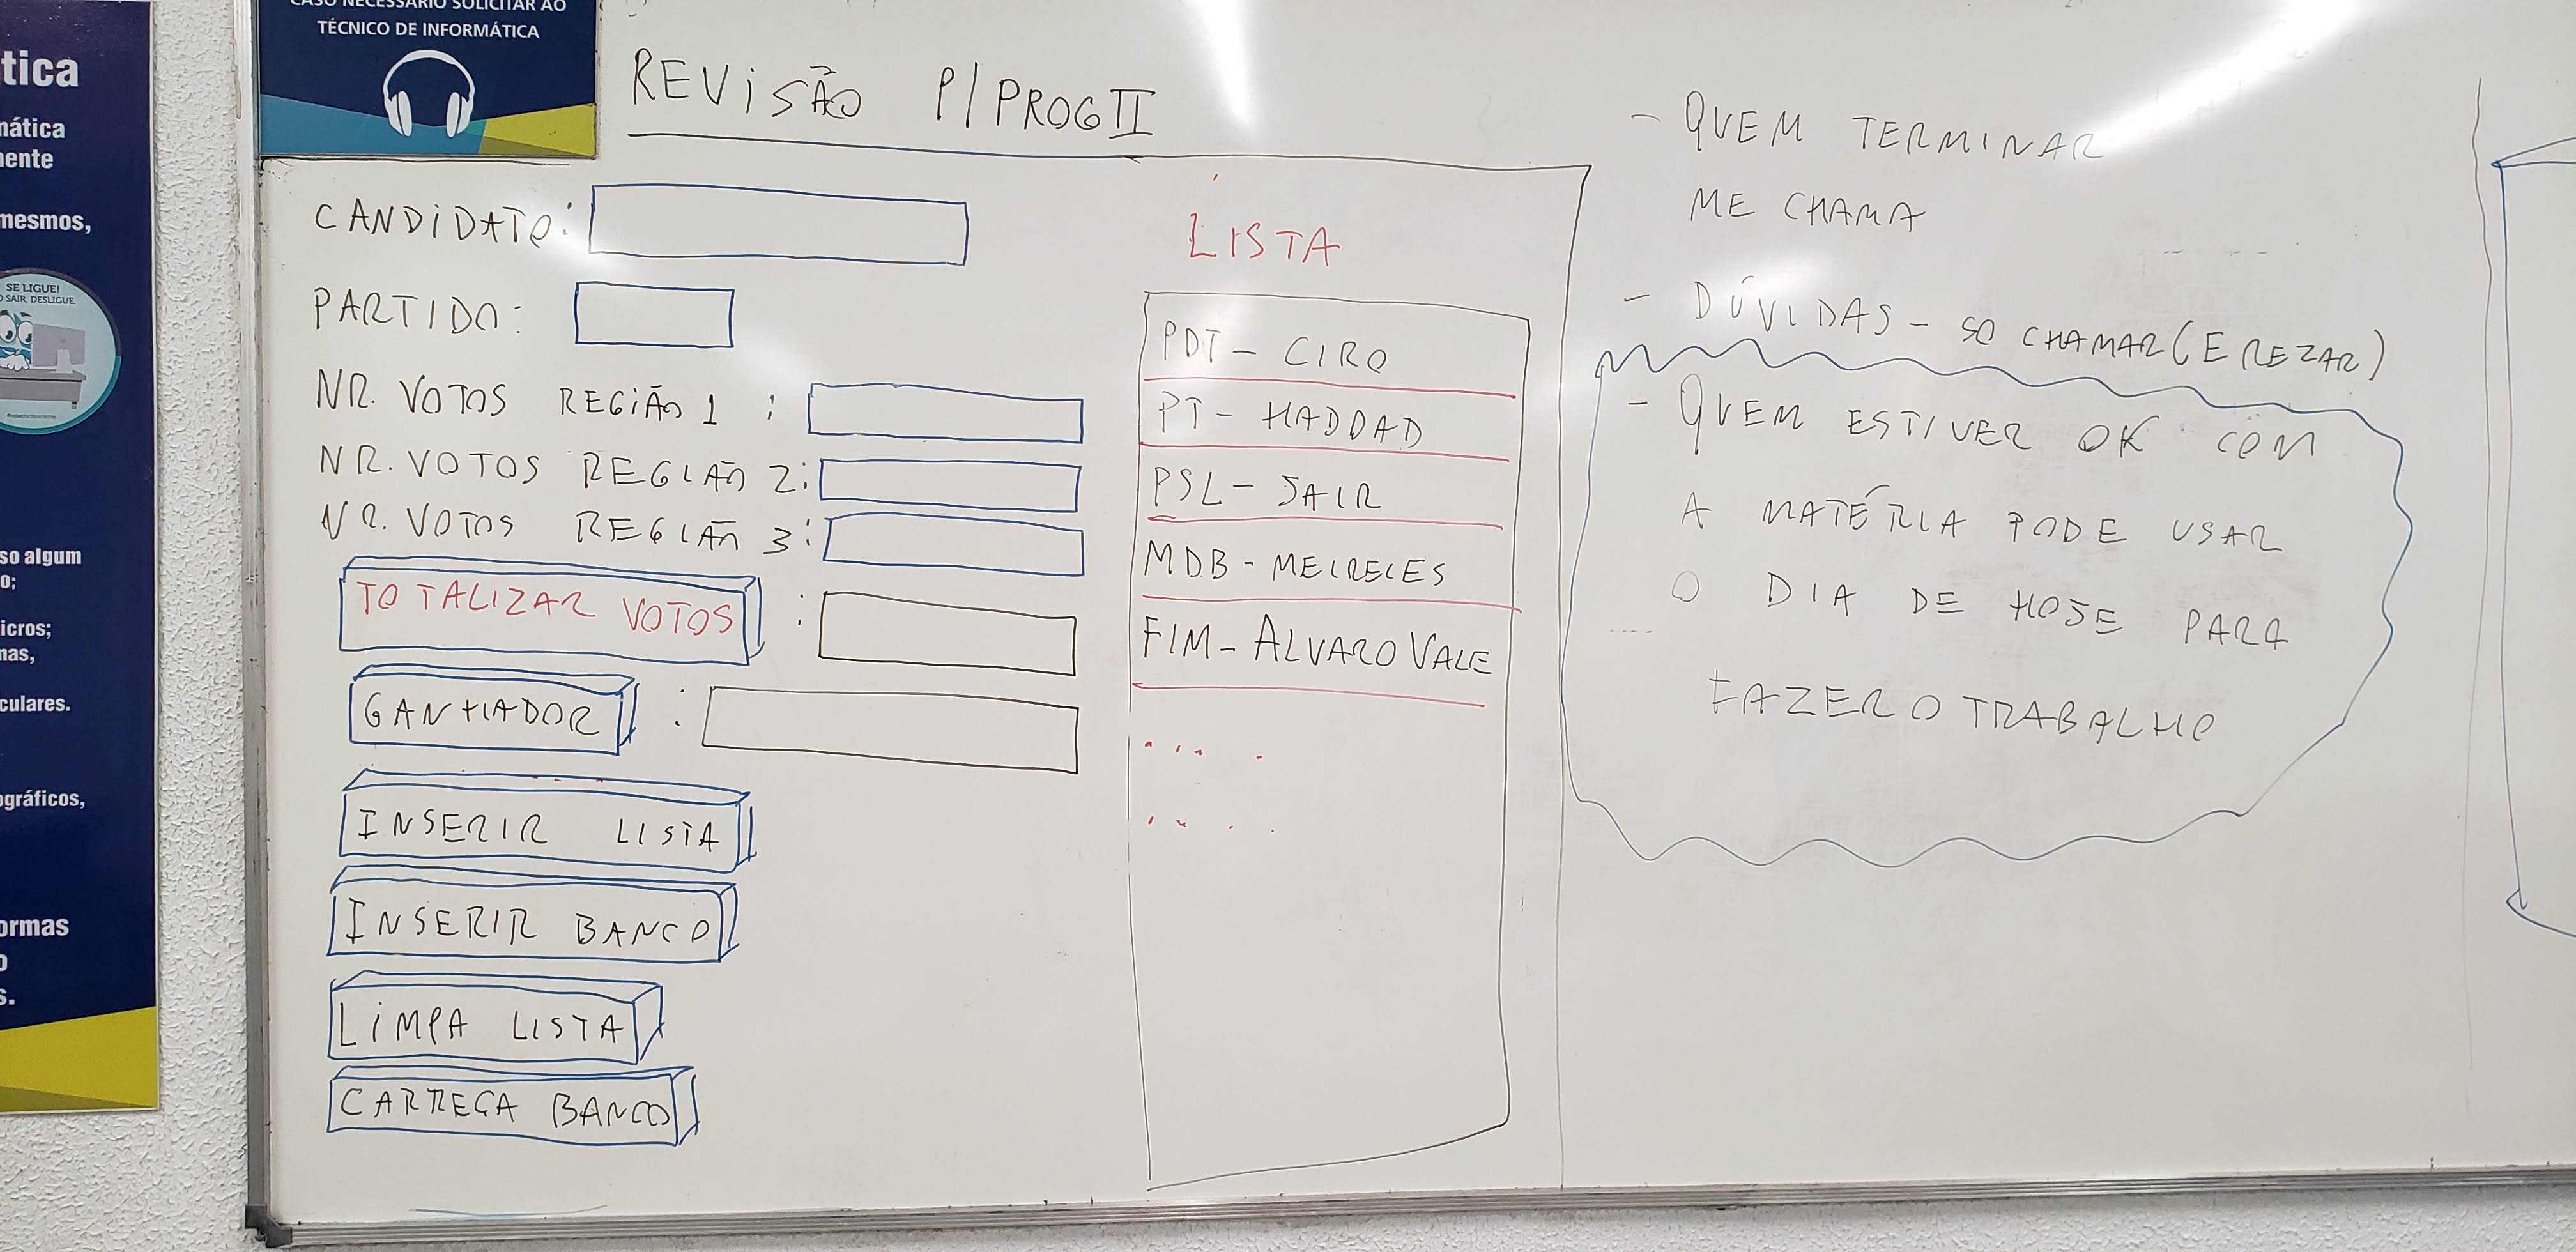 tica
mática
mente
mesmos,
SE LIGUE!
SAIR, DESLIGUE.
so algum
o;
icros;
nas,
culares.
ográficos,
ormas
o
s.
CASO NECESSÁRIO SOLICITAR AO
TÉCNICO DE INFORMÁTICA
REVISÃO P/PROG II
CANDIDATO:
PARTIDO:
NR. VOTOS REGIÃO 1 :
NR. VOTOS REGIÃO 2:
NR. VOTOS REGIÃO 3:
TOTALIZAR VOTOS :
GANHADOR :
INSERIR LISTA
INSERIR BANCO
LIMPA LISTA
CARREGA BANCO
LISTA
PDT - CIRO
PT - HADDAD
PSL - JAIR
MDB - MEIRELES
FIM - ALVARO VALE
- QUEM TERMINAR
ME CHAMA
- DÚVIDAS - SO CHAMAR (E REZAR)
- QUEM ESTIVER OK COM
A MATÉRIA PODE USAR
O DIA DE HOJE PARA
FAZER O TRABALHO